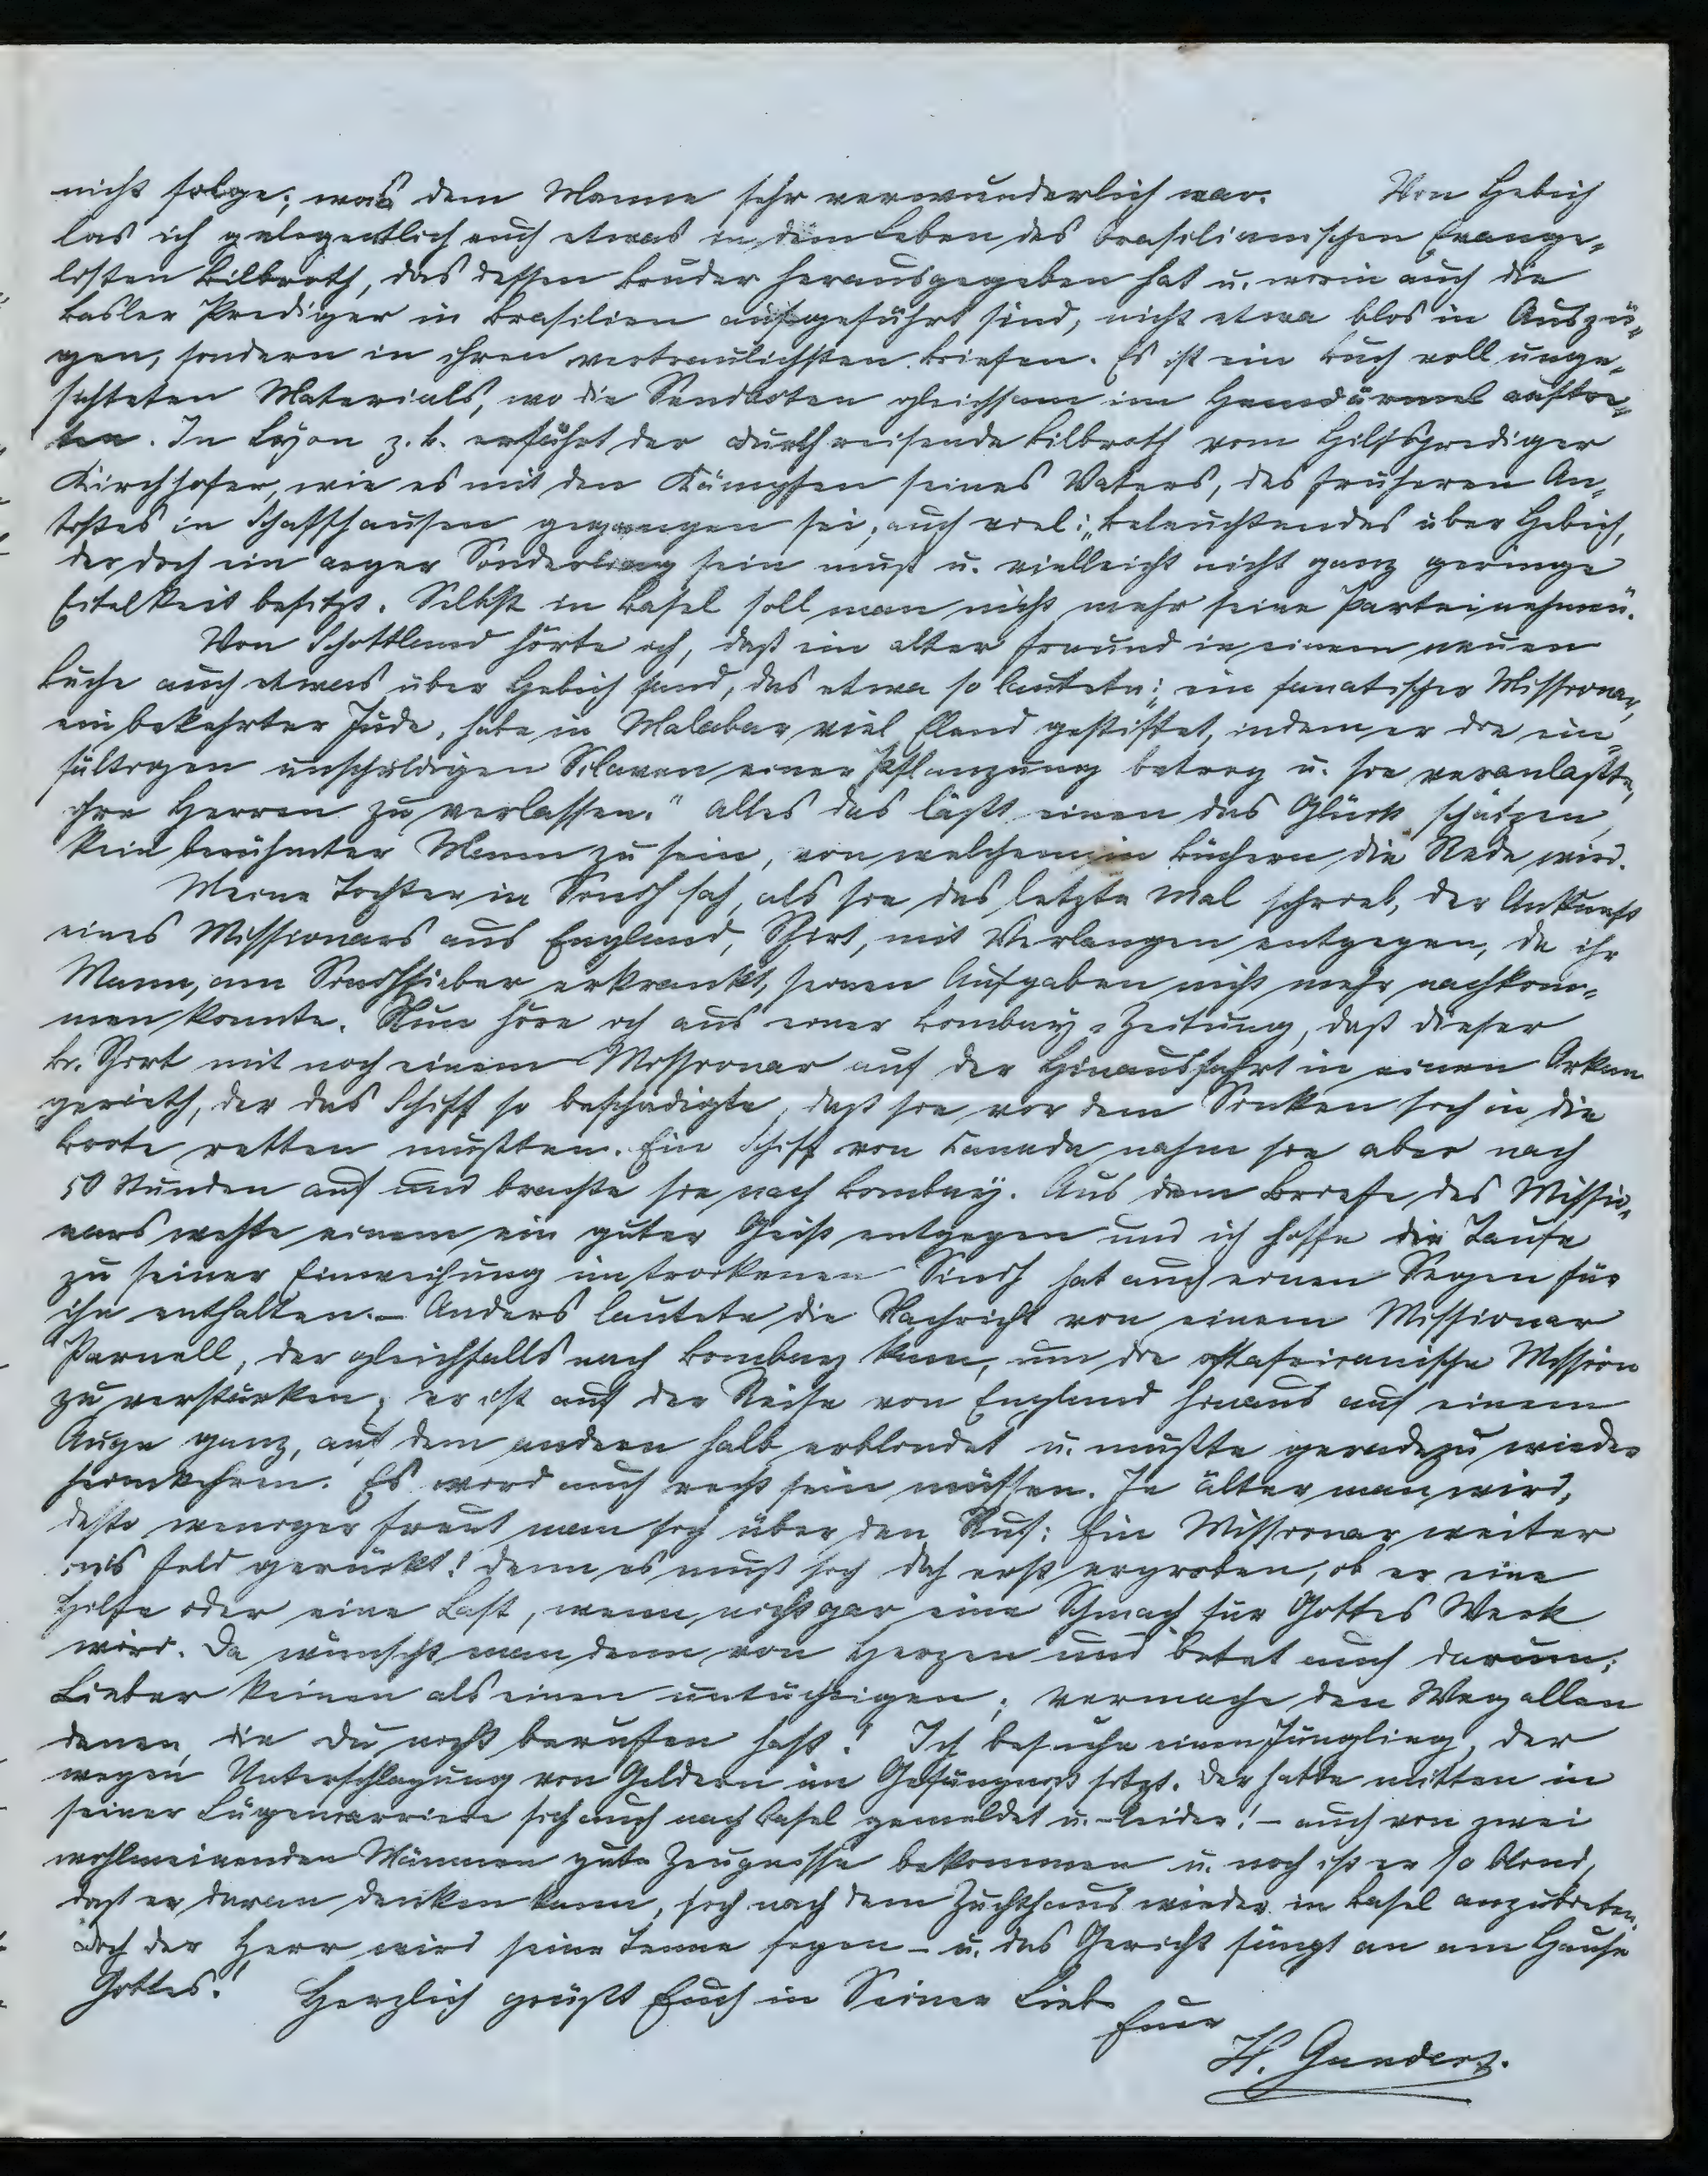 nicht folge; was dem Manne sehr verwunderlich war. Von Hebich
las ich gelegentlich auch etwas in dem Leben des brasilianischen Evange-
listen Bilbroth, das dessen Bruder herausgegeben hat u. worin auch die
Basler Prediger in Brasilien aufgeführt sind, nicht etwa blos in Auszü-
gen, sondern in ihren vertraulichsten Briefen. Es ist ein Buch voll unge-
sichteten Materials, wo die Sendboten gleichsam im Hemdärmel auftre-
ten. In Lyon z. B. erfährt der durchreisende Bilbroth vom Hilfsprediger
Kirchhofer, wie es mit den Kämpfen seines Vaters, des früheren An-
tistes in Schaffhausen gegangen sei, auch viel: „Beleuchtendes über Hebich,
der doch ein arger Sonderling sein muß u. vielleicht nicht ganz geringe
Eitelkeit besitzt. Selbst in Basel soll man nicht mehr seine Partei nehmen“.
Von Schottland hörte ich, daß ein alter Freund in einem neuen
Buche auch etwas über Hebich fand, das etwa so lautete: „ein fanatischer Missionar,
ein bekehrter Jude, habe in Malabar viel Elend gestiftet, indem er die ein-
fältigen unschuldigen Sclaven einer Pflanzung betrog u. sie veranlaßte,
ihre Herren zu verlassen.“ Alles das läßt einen das Glück schätzen,
kein berühmter Mann zu sein, von welchem in Büchern die Rede wird.
Meine Tochter in Sindh sah, als sie das letzte Mal schrieb, der Ankunft
eines Missionars aus England, Shirt, mit Verlangen entgegen, da ihr
Mann, am Sindhfieber erkrankt, seinen Aufgaben nicht mehr nachkom-
men konnte. Nun höre ich aus einer Bombay-Zeitung, daß dieser
Br. Shirt mit noch einem Missionar auf der Hinausfahrt in einen Orkan
gerieth, der das Schiff so beschädigte, daß sie vor dem Sinken sich in die
Boote retten mußten. Ein Schiff von Canada nahm sie aber nach
50 Stunden auf und brachte sie nach Bombay. Aus dem Briefe des Missio-
nars wehte einem ein guter Geist entgegen und ich hoffe die Taufe
zu seiner Einweihung im trockenen Sindh hat auch einen Segen für
ihn enthalten. – Anders lautete die Nachricht von einem Missionar
Parnell, der gleichfalls nach Bombay kam, um die ostafricanische Mission
zu verstärken; er ist auf der Reise von England hinaus auf einem
Auge ganz, auf dem andern halb erblindet u. mußte geradezu wieder
heimkehren. Es wird auch recht sein müssen. Je älter man wird,
desto weniger freut man sich über den Ruf: Ein Missionar weiter
ins Feld gerückt! denn es muß sich doch erst erproben, ob er eine
Hilfe oder eine Last, wenn nicht gar eine Schmach für Gottes Werk
wird. Da wünscht man denn von Herzen und betet auch darum:
Lieber keinen als einen untüchtigen; vermache den Weg allen
denen, die Du nicht berufen hast! Ich besuche einen Jüngling, der
wegen Unterschlagung von Geldern im Gefängniß sitzt. Der hatte mitten in
seiner Lügencarriere sich auch nach Basel gemeldet u. – leider! – auch von zwei
wohlmeinenden Männern gute Zeugnisse bekommen u. noch ist er so blind,
daß er daran denken kann, sich nach dem Zuchthaus wieder in Basel anzubieten.
Doch der Herr wird seine Tenne fegen – u. das Gericht fängt an am Hause
Gottes! Herzlich grüßt Euch in Seiner Liebe
Euer
H. Gundert.